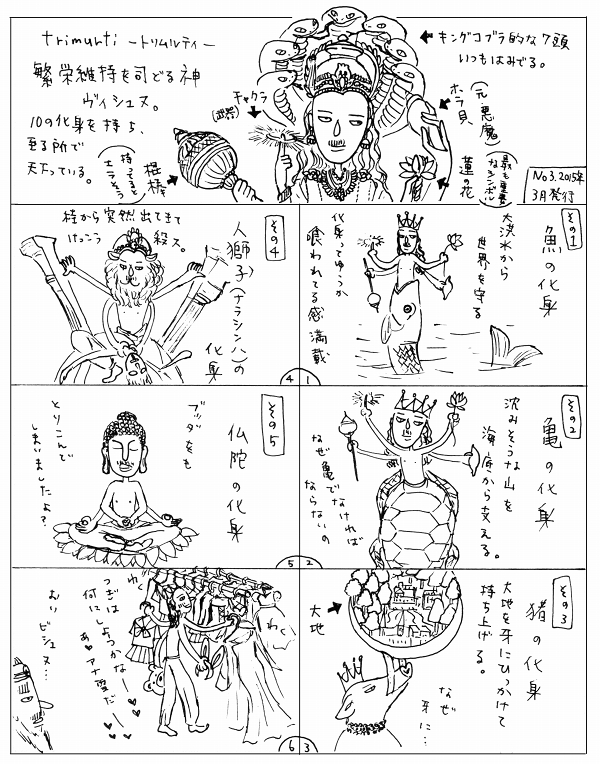 trimurti －トリムルティ－
繁栄維持を司どる神
ヴィシュヌ。
10の化身を持ち、
至る所で
天たっている。
チャクラ
(武器)
棍棒
持ってると
モテそう
←キングコブラ的な7頭
いつもはみでる。
ホラ貝
(元悪魔)
蓮の花
(最も重要
なシンボル)
No3.2015年
3月発行
その1
魚の化身
大洪水から
世界を守る
化身ってゆうか
喰われてる感満載
1
その2
亀の化身
沈みそうな山を
海底から支える。
なぜ亀でなければ
ならないの
2
その3
猪の化身
大地を牙にひっかけて
持ち上げる。
大地
なぜ
牙に…
3
その4
人獅子(ナラシンハ)の
化身
柱から突然出てきて
けっこう殺ス。
4
その5
仏陀の化身
ブッダをも
とりこんで
しまいましたよ?
5
わく
わく
つぎは
何にしよっかなー
あ♥アナ雪だー♥♥♥
おい
ビシュヌ…
6